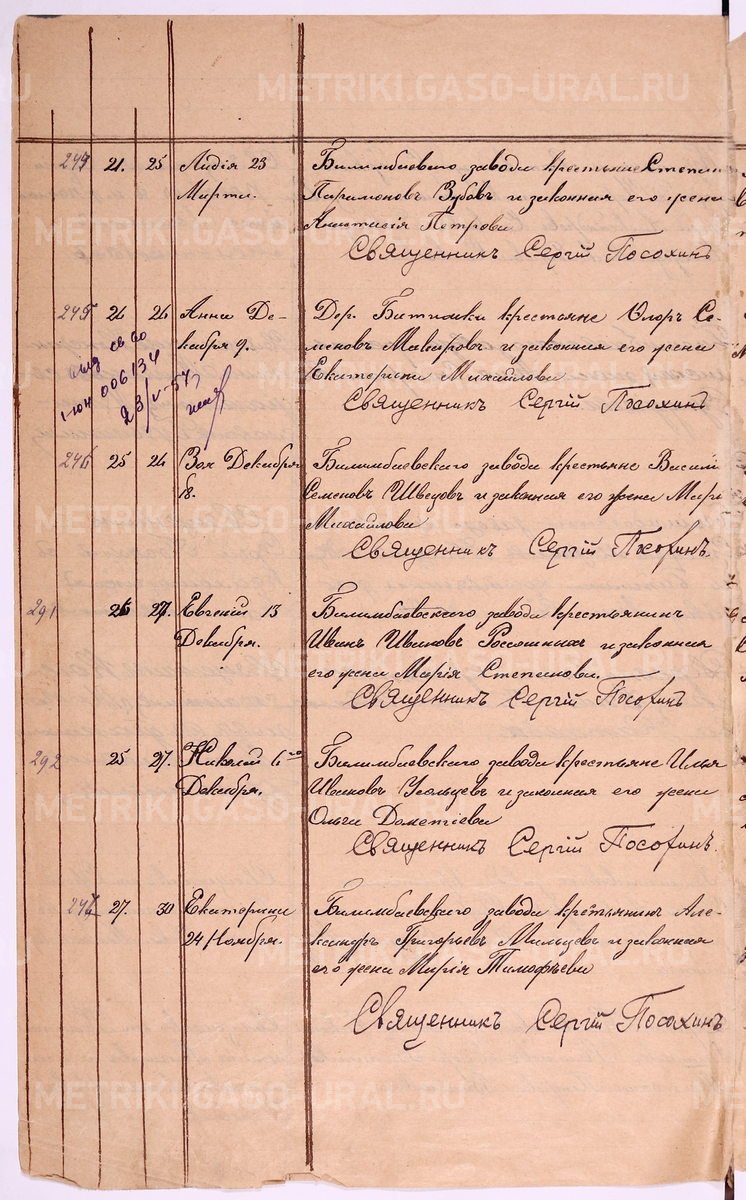 METRIKI.GASO-URAL.RU
244 21. 25 Лидія 23 Билимбаевскаго завода крестьяне Степанъ
Марта. Парамоновъ Зубовъ и законная его жена
Анастасія Петрова
Священникъ Сергій Посохинъ
245 26 26 Анна Де- Дер. Битимки крестьяне Флоръ Се-
кабря 9. меновъ Макаровъ и законная его жена
Екатерина Михайлова
Священникъ Сергій Посохинъ
выд св во
1-юн 006134
23/V-54
246 25 26 Зоя Декабря Билимбаевскаго завода крестьяне Васили
18. Семеновъ Швецовъ и законная его жена Мари
Михайлова
Священникъ Сергій Посохинъ
291 26 27. Евгеній 13 Билимбаевскаго завода крестьянинъ
Декабря. Иванъ Ивановъ Россошныхъ и законная
его жена Марія Степанова.
Священникъ Сергій Посохинъ
292 25 27. Николай 6го Билимбаевскаго завода крестьяне Илья
Декабря. Ивановъ Усольцевъ и законная его жена
Ольга Дометіева
Священникъ Сергій Посохинъ.
247 27. 30 Екатерина Билимбаевскаго завода крестьянинъ Але-
24 Ноября. ксандръ Григорьевъ Мальцевъ и законная
его жена Марія Тимофѣева
Священникъ Сергій Посохинъ